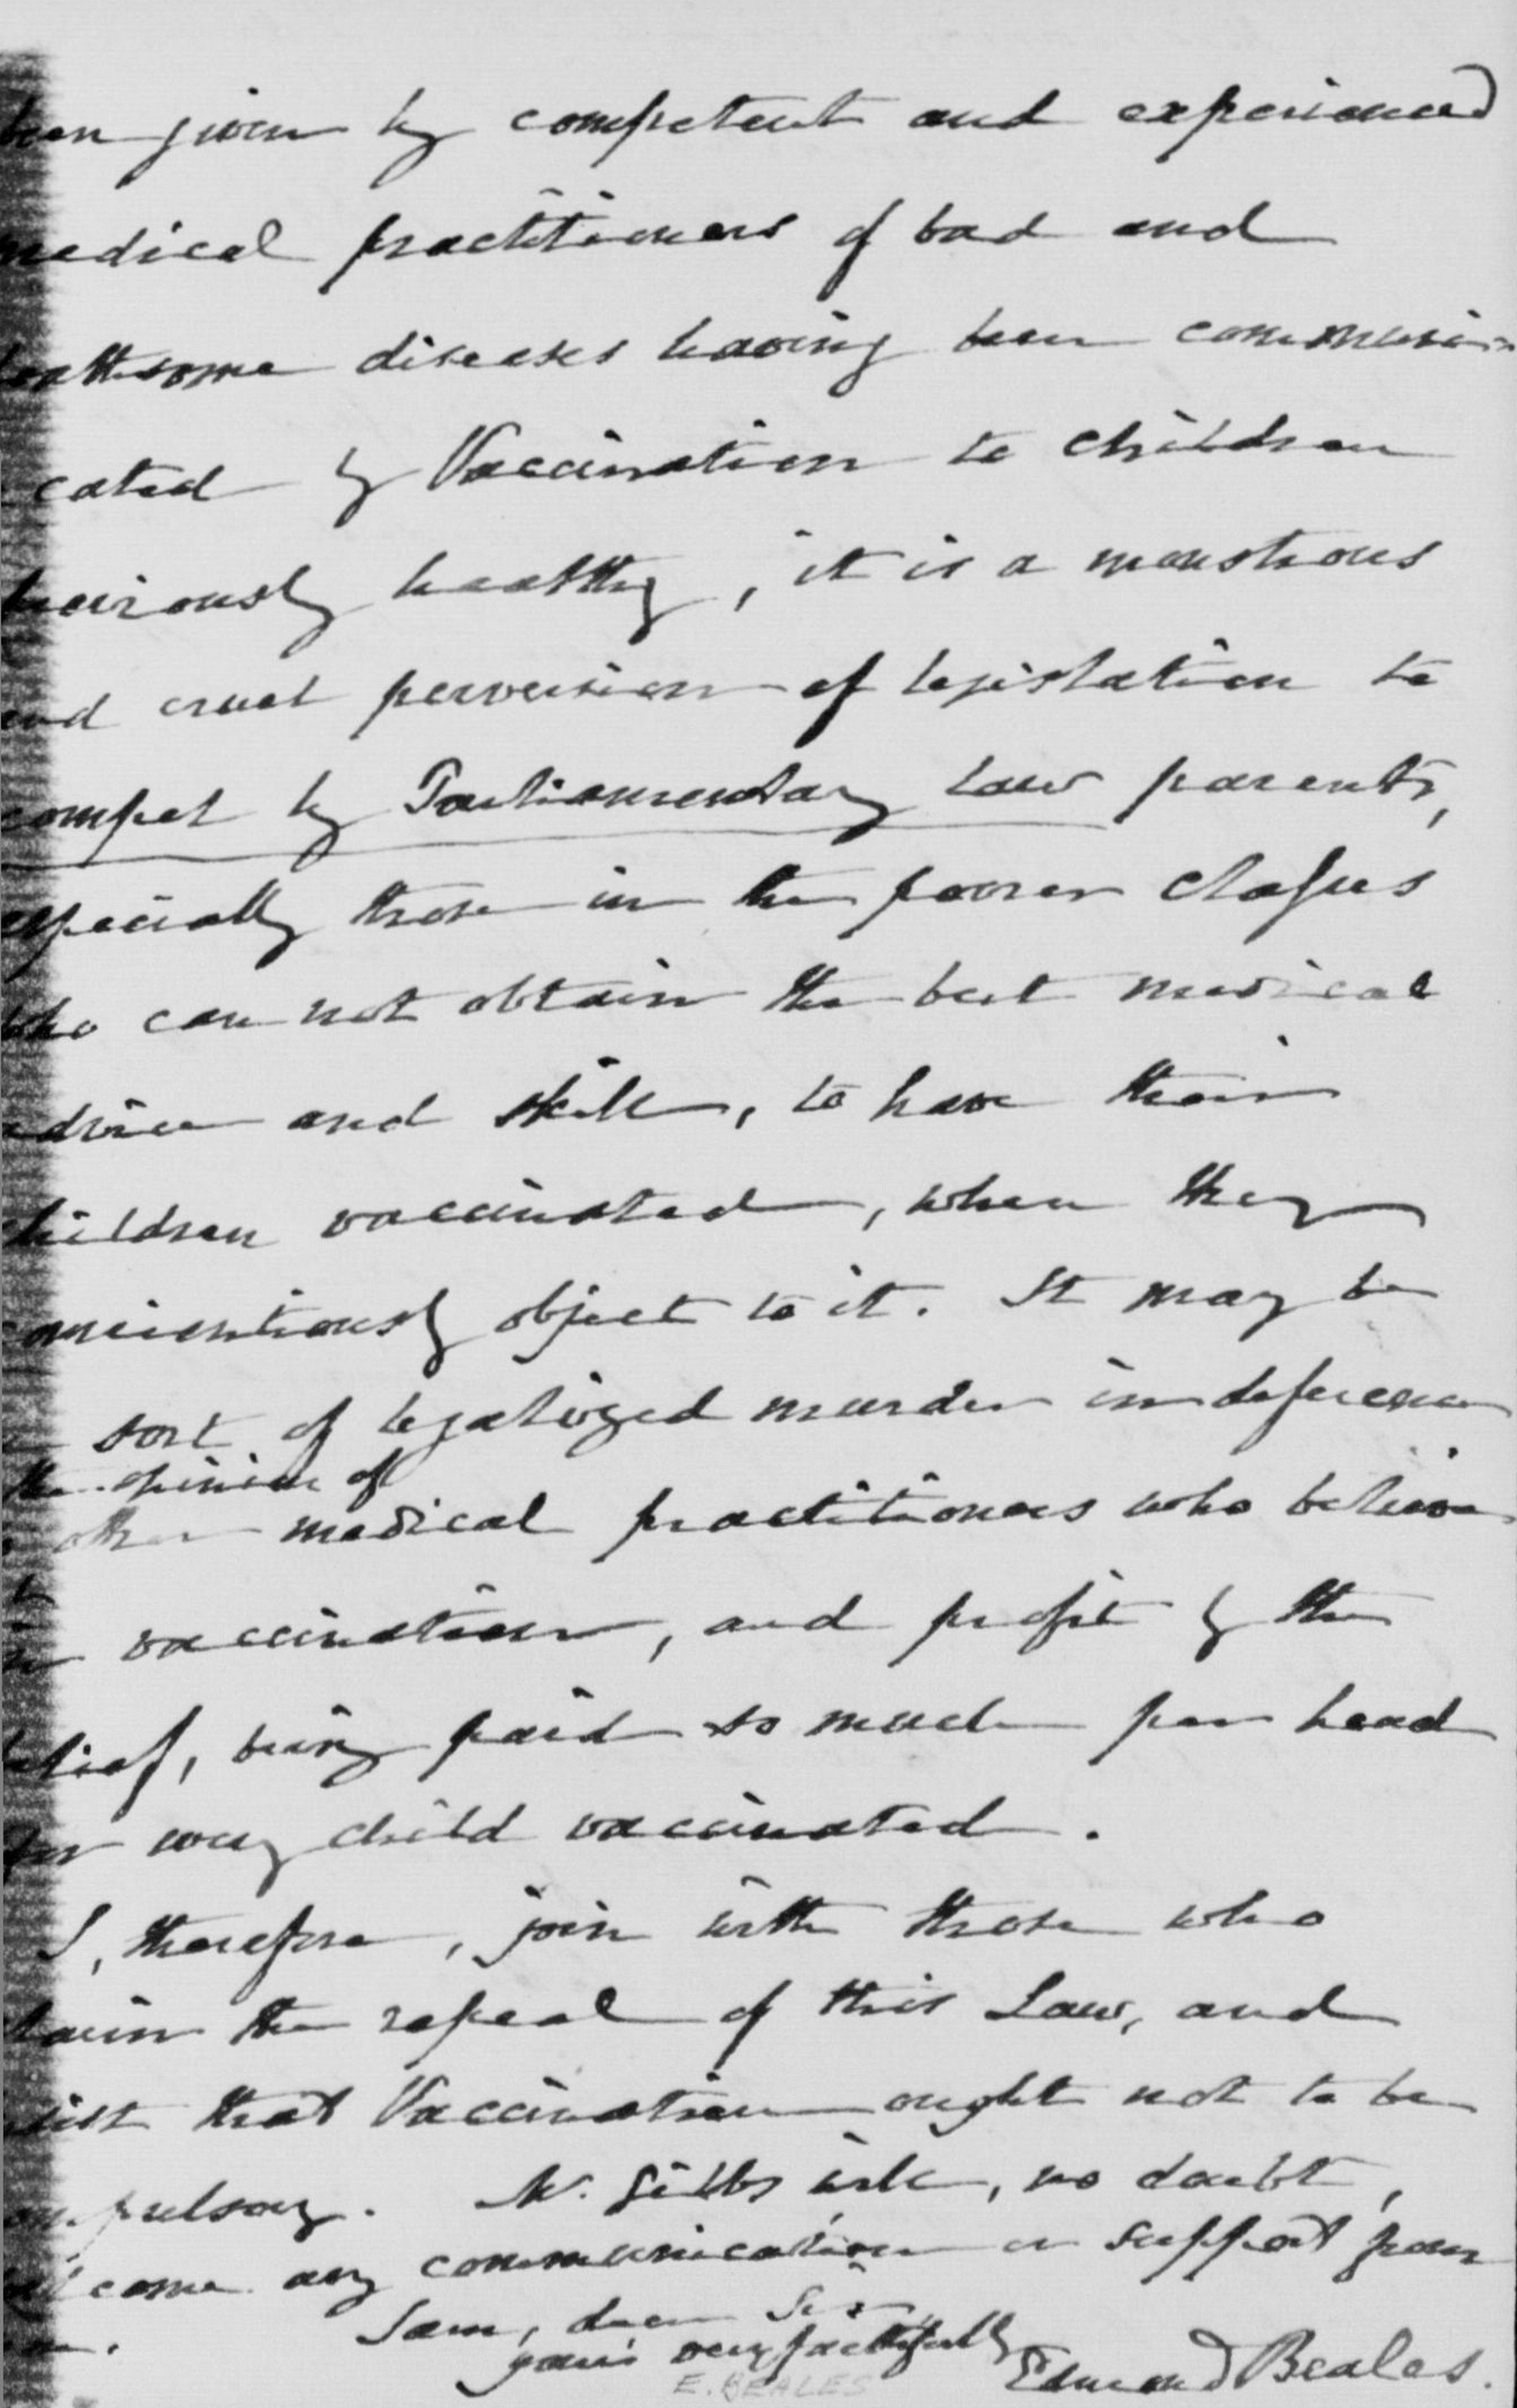 been given by competent and experienced
medical practitioners of bad and
loathsome diseases having been communi-
cated by Vaccination to children
previously healthy, it is a monstrous
and cruel perversion of legislation to
compel by Parliamentary Law parents,
especially those in the poorer classes
who can not obtain the best medical
advice and skill, to have their
children vaccinated, when they
conscientiously object to it. It may be
a sort of legalized murder in deference
the opinion of
other medical practitioners who believe
in vaccination, and profit by the
belief, being paid so much per head
for every child vaccinated.
I, therefore, join with those who
claim the repeal of this Law, and
insist that Vaccination ought not to be
compulsory. Mr. Gibbs will, no doubt,
welcome any communication or support from
I am, dear Sir,
yours very faithfully
Edmond Beales.
E. BEALES